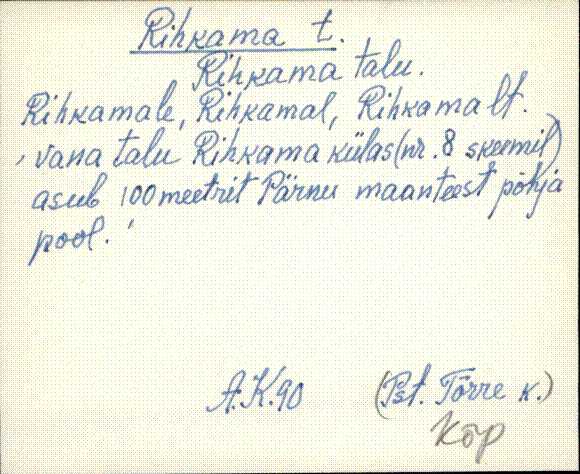 Rihkama t.
Rihkama talu.
Rihkamale, Rihkamal, Rihkamalt.
, vana talu Rihkama külas (nr. 8 skeemil)
asub 100 meetrit Pärnu maanteest põhja
pool. '
A.K.90 (Pst. Tõrre k.)
Kõp